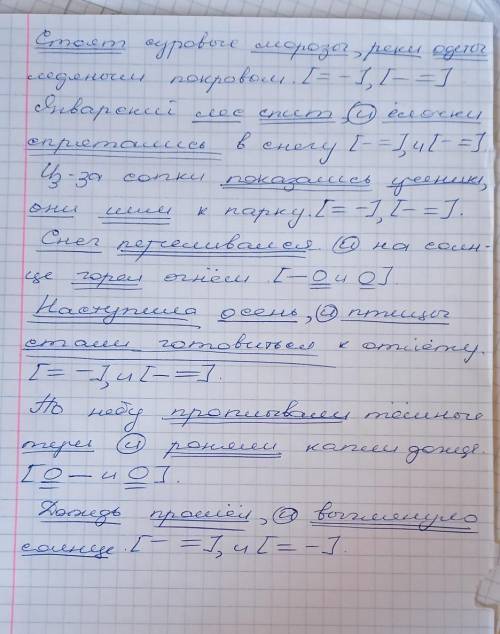 Стоят суровые морозы, реки одеты
ледяным покровом. [= -], [- =]
Январский лес спит, и ёлочки
спрятались в снегу [- =], и [- =]
Из-за сопки показались ученики,
они шли к парку. [= -], [- =].
Снег переливался и на солн-
це горел огнём. [- O и O].
Наступила осень, и птицы
стали готовиться к отлёту.
[= -], и [- =].
По небу проплывали тёмные
тучи и роняли капли дождя.
[O - и O].
Дождь прошёл, и выглянуло
солнце. [- =], и [= -].